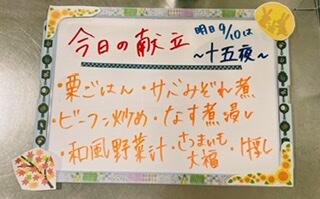 今日の献立
明日9/10は
～十五夜～
・栗ごはん・サバみぞれ煮
・ビーフン炒め・なす煮浸し
・和風野菜汁・さつまいも大福